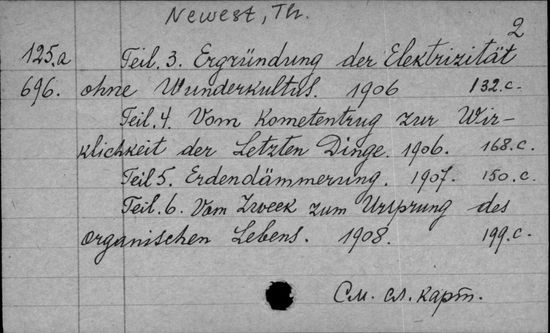 Newest, Th.
2
125.a Teil. 3. Ergründung der Elektrizität
696. ohne Wunderkultus. 1906 132.c.
Teil. 4. Vom Kometentrug zur Wir-
klichkeit der Letzten Dinge. 1906. 168.c.
Teil 5. Erdendämmerung. 1907. 150.c.
Teil. 6. Vom Zweck zum Ursprung des
organischen Lebens. 1908. 199.c.
См. сл. карт.